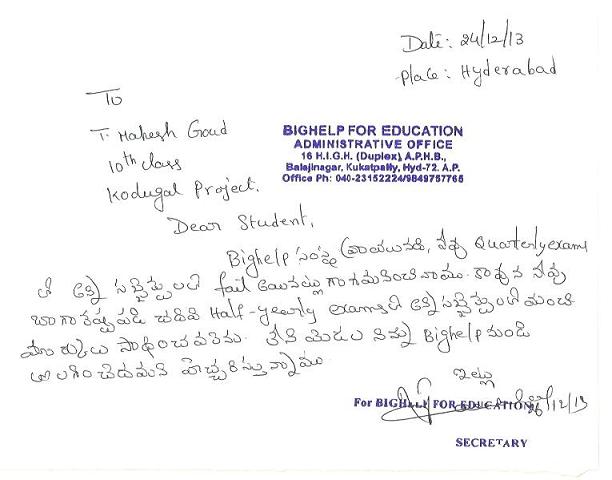 Date: 24/12/13
Place: Hyderabad
To
T. Mahesh Goud
10th class
Kodugal Project.
BIGHELP FOR EDUCATION
ADMINISTRATIVE OFFICE
16 H.I.G.H. (Duplex), A.P.H.B.,
Balajinagar, Kukatpally, Hyd-72. A.P.
Office Ph: 040-23152224/9849757765
Dear Student,
Bighelp సంస్థ వ్రాయునది, నీవు Quarterly exams
లో అన్ని సబ్జెక్ట్లులో fail అయినట్లు గా గమనించినాము. కావున నీవు
బాగా కష్టపడి చదివి Half-yearly examsలో అన్ని సబ్జెక్ట్లులో మంచి
మార్కులు సాధించవలెను. లేని యెడల నిన్ను Bighelp నుండి
తొలగించెదమని హెచ్చరిస్తున్నాము
ఇట్లు
For BIGHELP FOR EDUCATION
26/12/13
SECRETARY